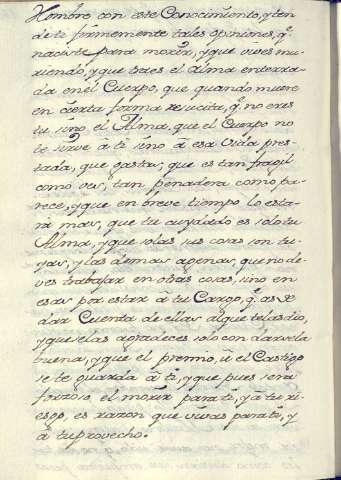 Hombre con este Conocimiento, y ten
de ti firmemente tales opiniones, q.
naciste para morir, y que vives mu
riendo, y que traes el Alma enterra
da en el Cuerpo, que quando muere
en cierta forma resucita, q. no eres
tu sino el Alma, que el Cuerpo no
te sirve à ti sino à esa vida pres
tada, que gastas, que es tan fragil
como ves, tan penadera como pa
rece, y que en breve tiempo lo esta
rà mas, que tu cuydado es solo tu
Alma, y que solas sus cosas son tu
yas, y las demas agenas, que no de
ves trabajar en otras cosas, sino en
esas por estar à tu Cargo, q. as de
dar Cuenta de ellas al que te las dio,
y que se las agradeces solo con darsela
buena, y que el premio, ù el Castigo
se te guarda à ti, y que pues serà
forzoso el morir para ti, y à tu ri
esgo, es razon que vivas para ti, y
à tu provecho.